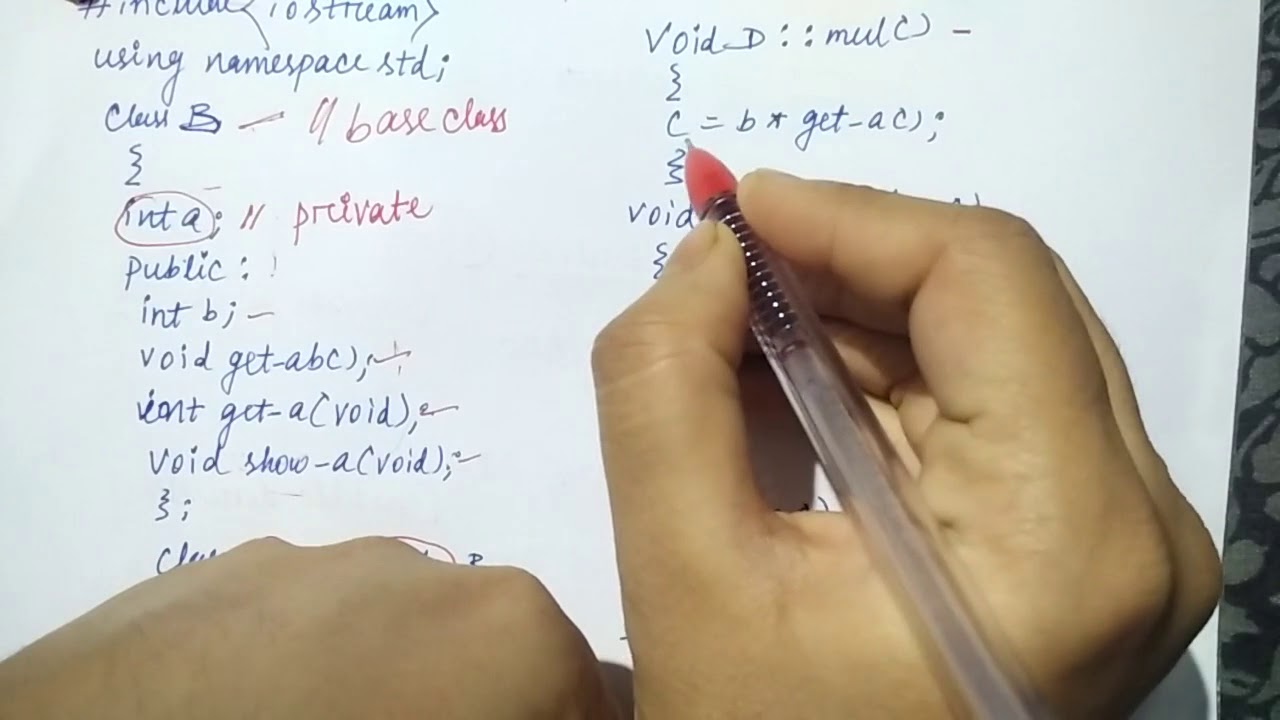 #include<iostream>
using namespace std;
Class B — // base class
{
int a; // private
public:
int b;
void get-ab();
int get-a(void);
void show-a(void);
};
Void D::mul()
{
C = b * get-a();
}
void
{